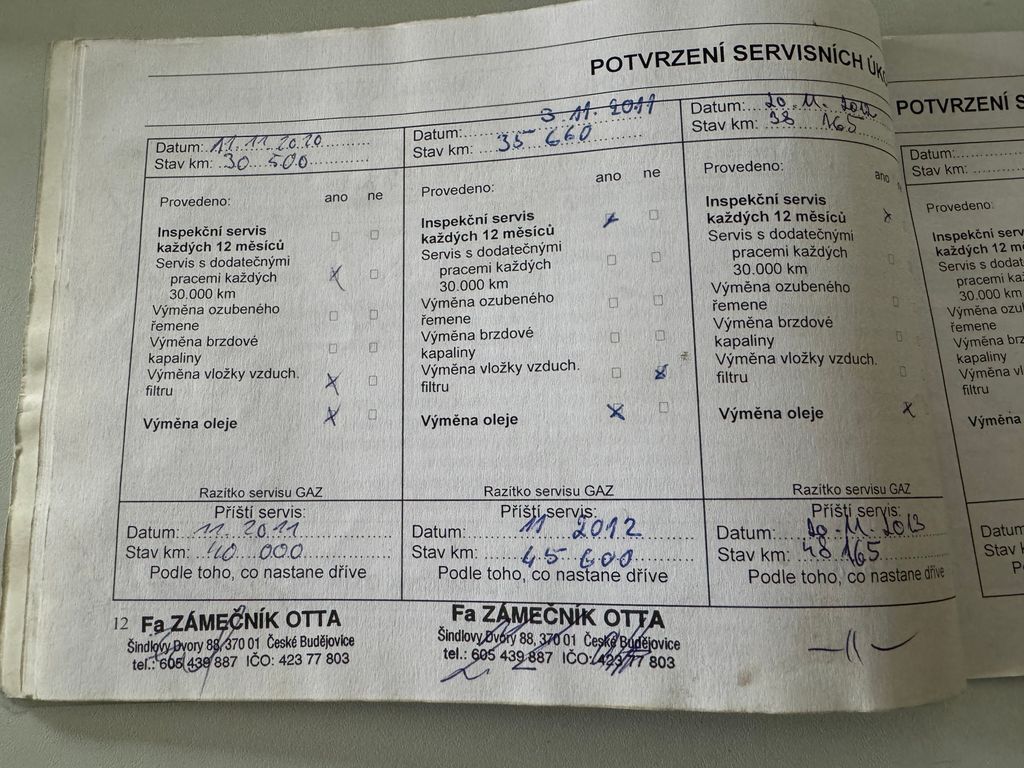 POTVRZENÍ SERVISNÍCH
Datum: 11. 11. 2020
Stav km: 30 500
Provedeno: ano ne
Inspekční servis
každých 12 měsíců
Servis s dodatečnými
pracemi každých
30.000 km
Výměna ozubeného
řemene
Výměna brzdové
kapaliny
Výměna vložky vzduch.
filtru
Výměna oleje
Razítko servisu GAZ
Příští servis:
Datum: 11. 2011
Stav km: 40 000
Podle toho, co nastane dříve
12 Fa ZÁMEČNÍK OTTA
Šindlovy Dvory 88, 370 01 České Budějovice
tel.: 605 439 887 IČO: 423 77 803
Datum: 3. 11. 2011
Stav km: 35 660
Provedeno: ano ne
Inspekční servis
každých 12 měsíců
Servis s dodatečnými
pracemi každých
30.000 km
Výměna ozubeného
řemene
Výměna brzdové
kapaliny
Výměna vložky vzduch.
filtru
Výměna oleje
Razítko servisu GAZ
Příští servis:
Datum: 11 2012
Stav km: 45 600
Podle toho, co nastane dříve
Fa ZÁMEČNÍK OTTA
Šindlovy Dvory 88, 370 01 České Budějovice
tel.: 605 439 887 IČO: 423 77 803
Datum: 20. 11. 2012
Stav km: 38 165
Provedeno: ano
Inspekční servis
každých 12 měsíců
Servis s dodatečnými
pracemi každých
30.000 km
Výměna ozubeného
řemene
Výměna brzdové
kapaliny
Výměna vložky vzduch.
filtru
Výměna oleje
Razítko servisu GAZ
Příští servis:
Datum: 20. 11. 2013
Stav km: 48 165
Podle toho, co nastane dříve
—11—
POTVRZENÍ S
Datum:
Stav km:
Provedeno:
Inspekční
každých 12
Servis s
pracemi
30.000 km
Výměna
řemene
Výměna
kapaliny
Výměna
filtru
Výměna
Stav